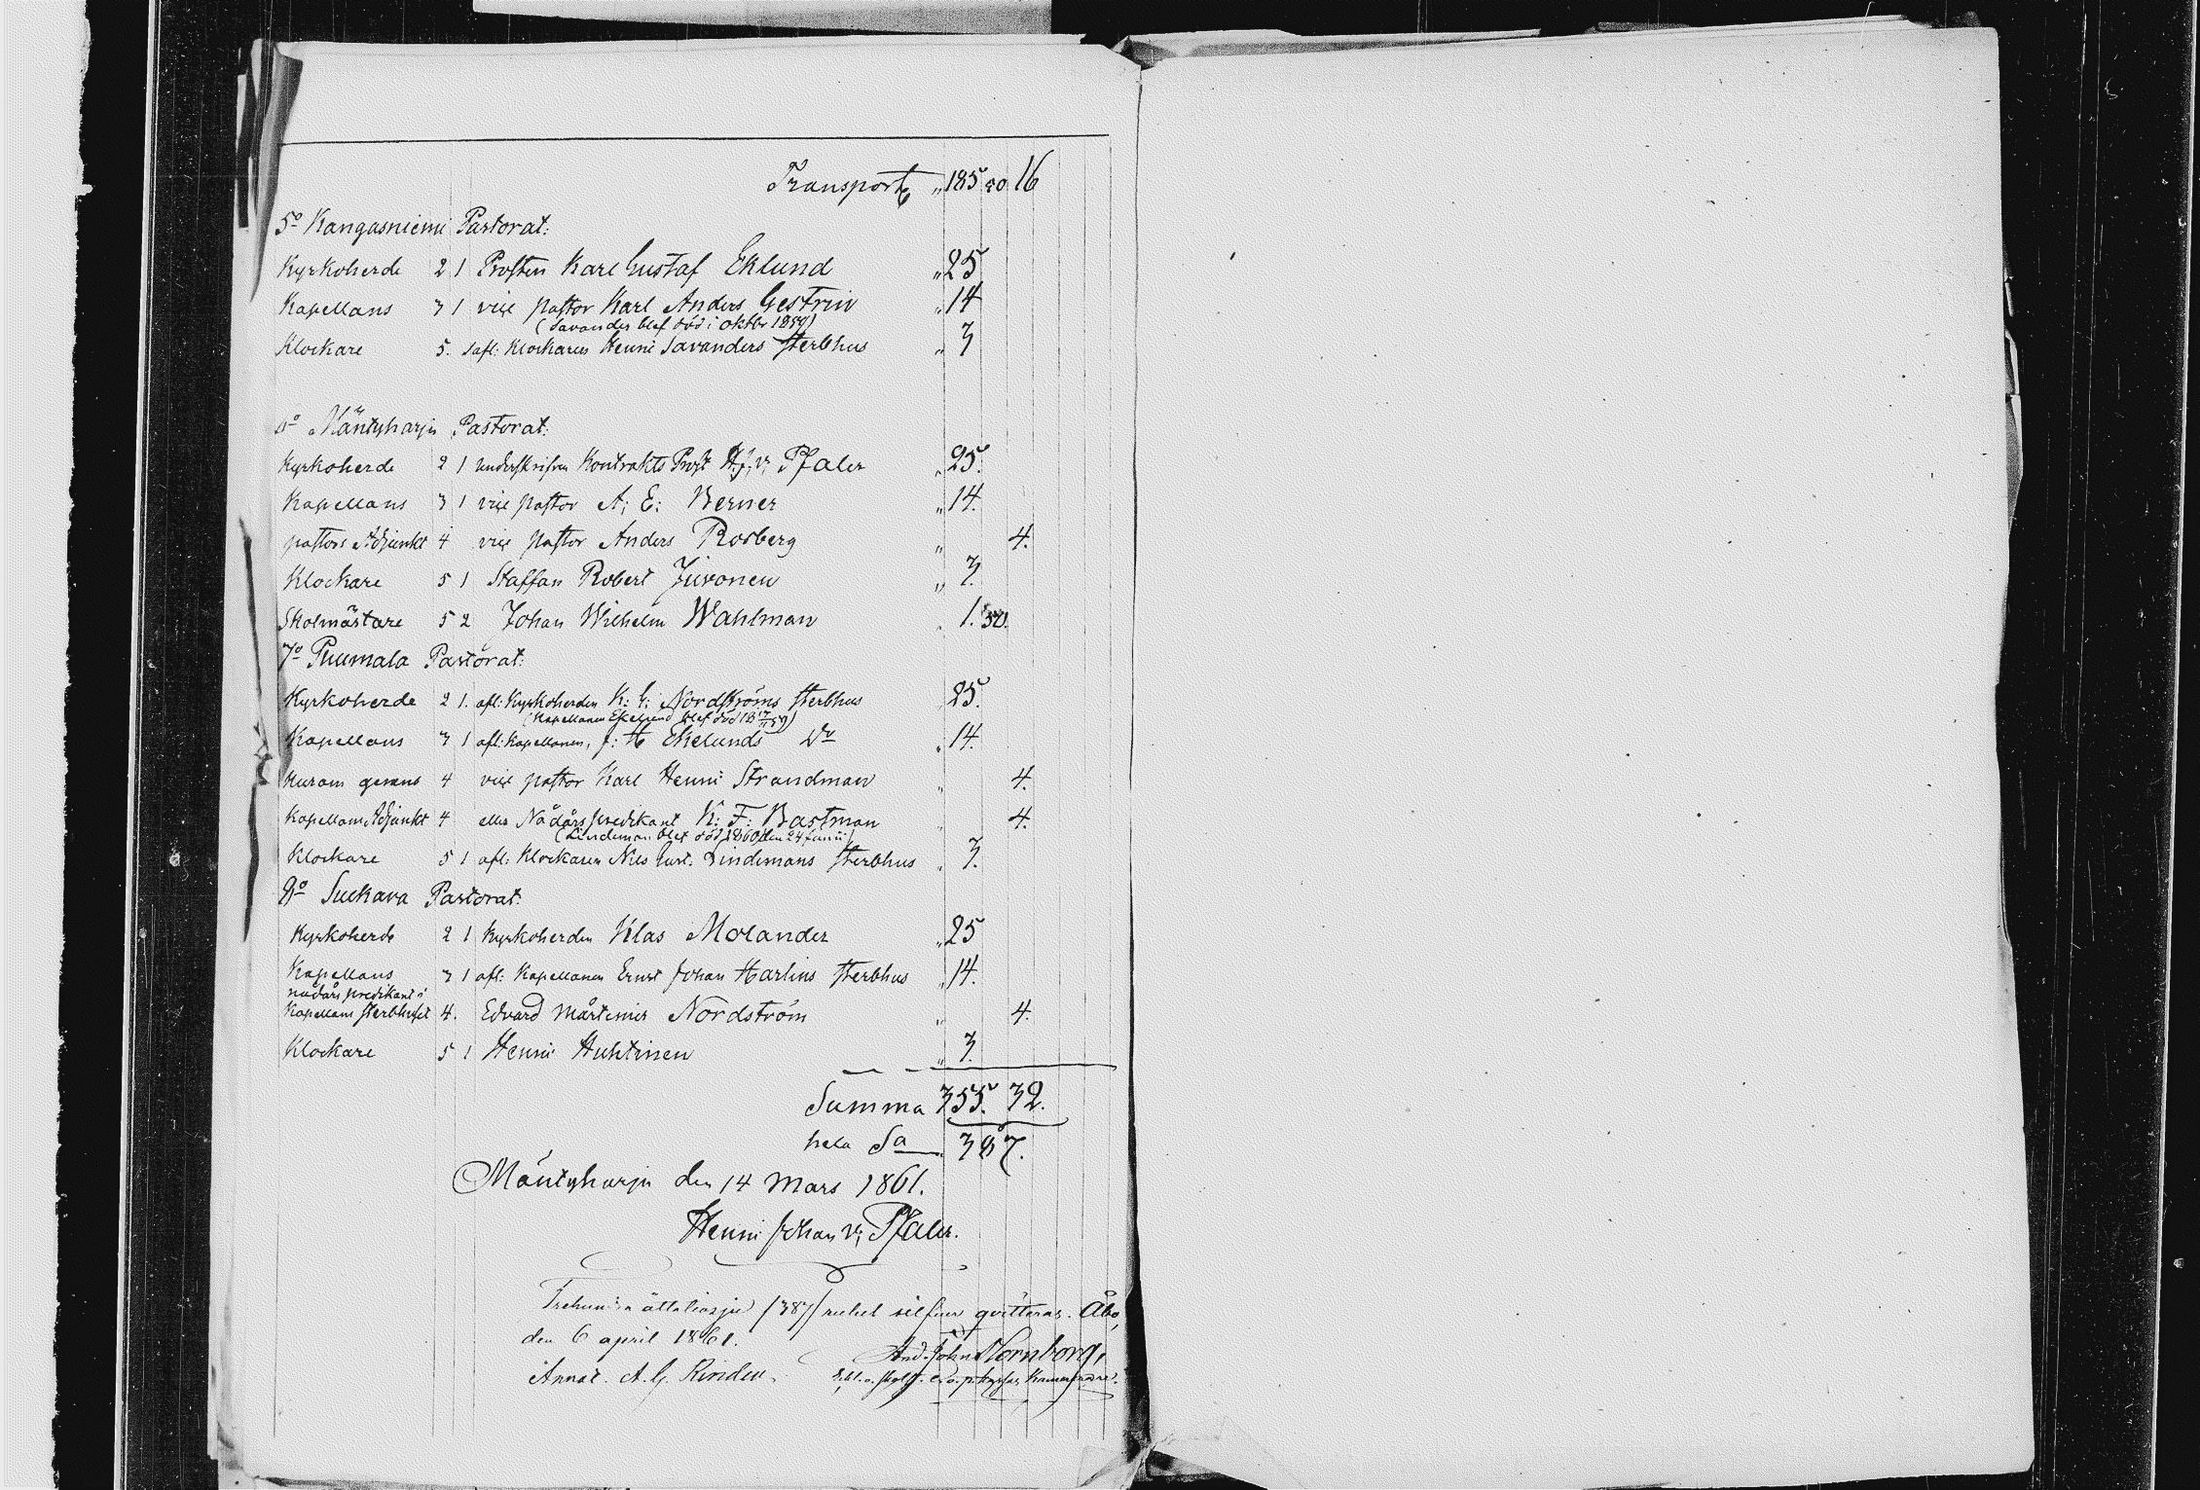 Transport „ 185 50 16
5º Kangasniemi Pastorat:
Kyrkoherde 2 1 Prosten Karl Gustaf Eklund „ 25
Kapellans 3 1 vice pastor Karl Anders Gestrin „ 14
(Savander blef död i oktbr 1859)
Klockare 5. Klockaren Henric Savanders sterbhus „ 3
6º Mäntyharju Pastorat:
Kyrkoherde 2 1 underskrifven Kontrakts Prost H. J. v; Pfaler „ 25.
Kapellans 3 1 vice pastor A; E; Berner „ 14.
pastors Adjunkt 4 vice pastor Anders Rosberg „ 4.
Klockare 5 1 Staffan Robert Juvonen „ 3.
Skolmästare 5 2 Johan Wilhelm Wahlman „ 1. 50.
7º Puumala Pastorat:
Kyrkoherde 2 1. afl: Kyrkoherden K: G: Nordströms sterbhus 25.
(Kapellanen Ekelund blef död 18 59)
Kapellans 3 1 afl: Kapellanen, J: H Ekelunds Do „ 14.
Curam gerens 4 vice pastor Karl Henric Strandman „ 4.
Kapellans Adjunkt 4 eller Nådårspredikant K: F: Bastman „ 4.
(Lindeman blef död 1860 den 24 Junii)
Klockare 5 1 afl: Klockaren Nils Gust. Lindemans sterbhus „ 3.
8º Suckava Pastorat:
Kyrkoherde 2 1 Kyrkoherden Klas Molander „ 25
Kapellans 3 1 afl: Kapellanen Ernst Johan Harlins sterbhus „ 14.
nådårs predikant i
Kapellans sterbhuset 4. Edvard Mårtenus Nordström „ 4.
Klockare 5 1 Henric Huhtinen „ 3.
Summa 355. 32.
hela Sa 387.
Mäntyharju den 14 Mars 1861.
Henric Johan v; Pfaler.
Trehundra åttatiosju /387/ rubel silfver qvitteras. Åbo,
den 6 april 1861.
And. John Hornborg,
Annot. A. G. Rinden.